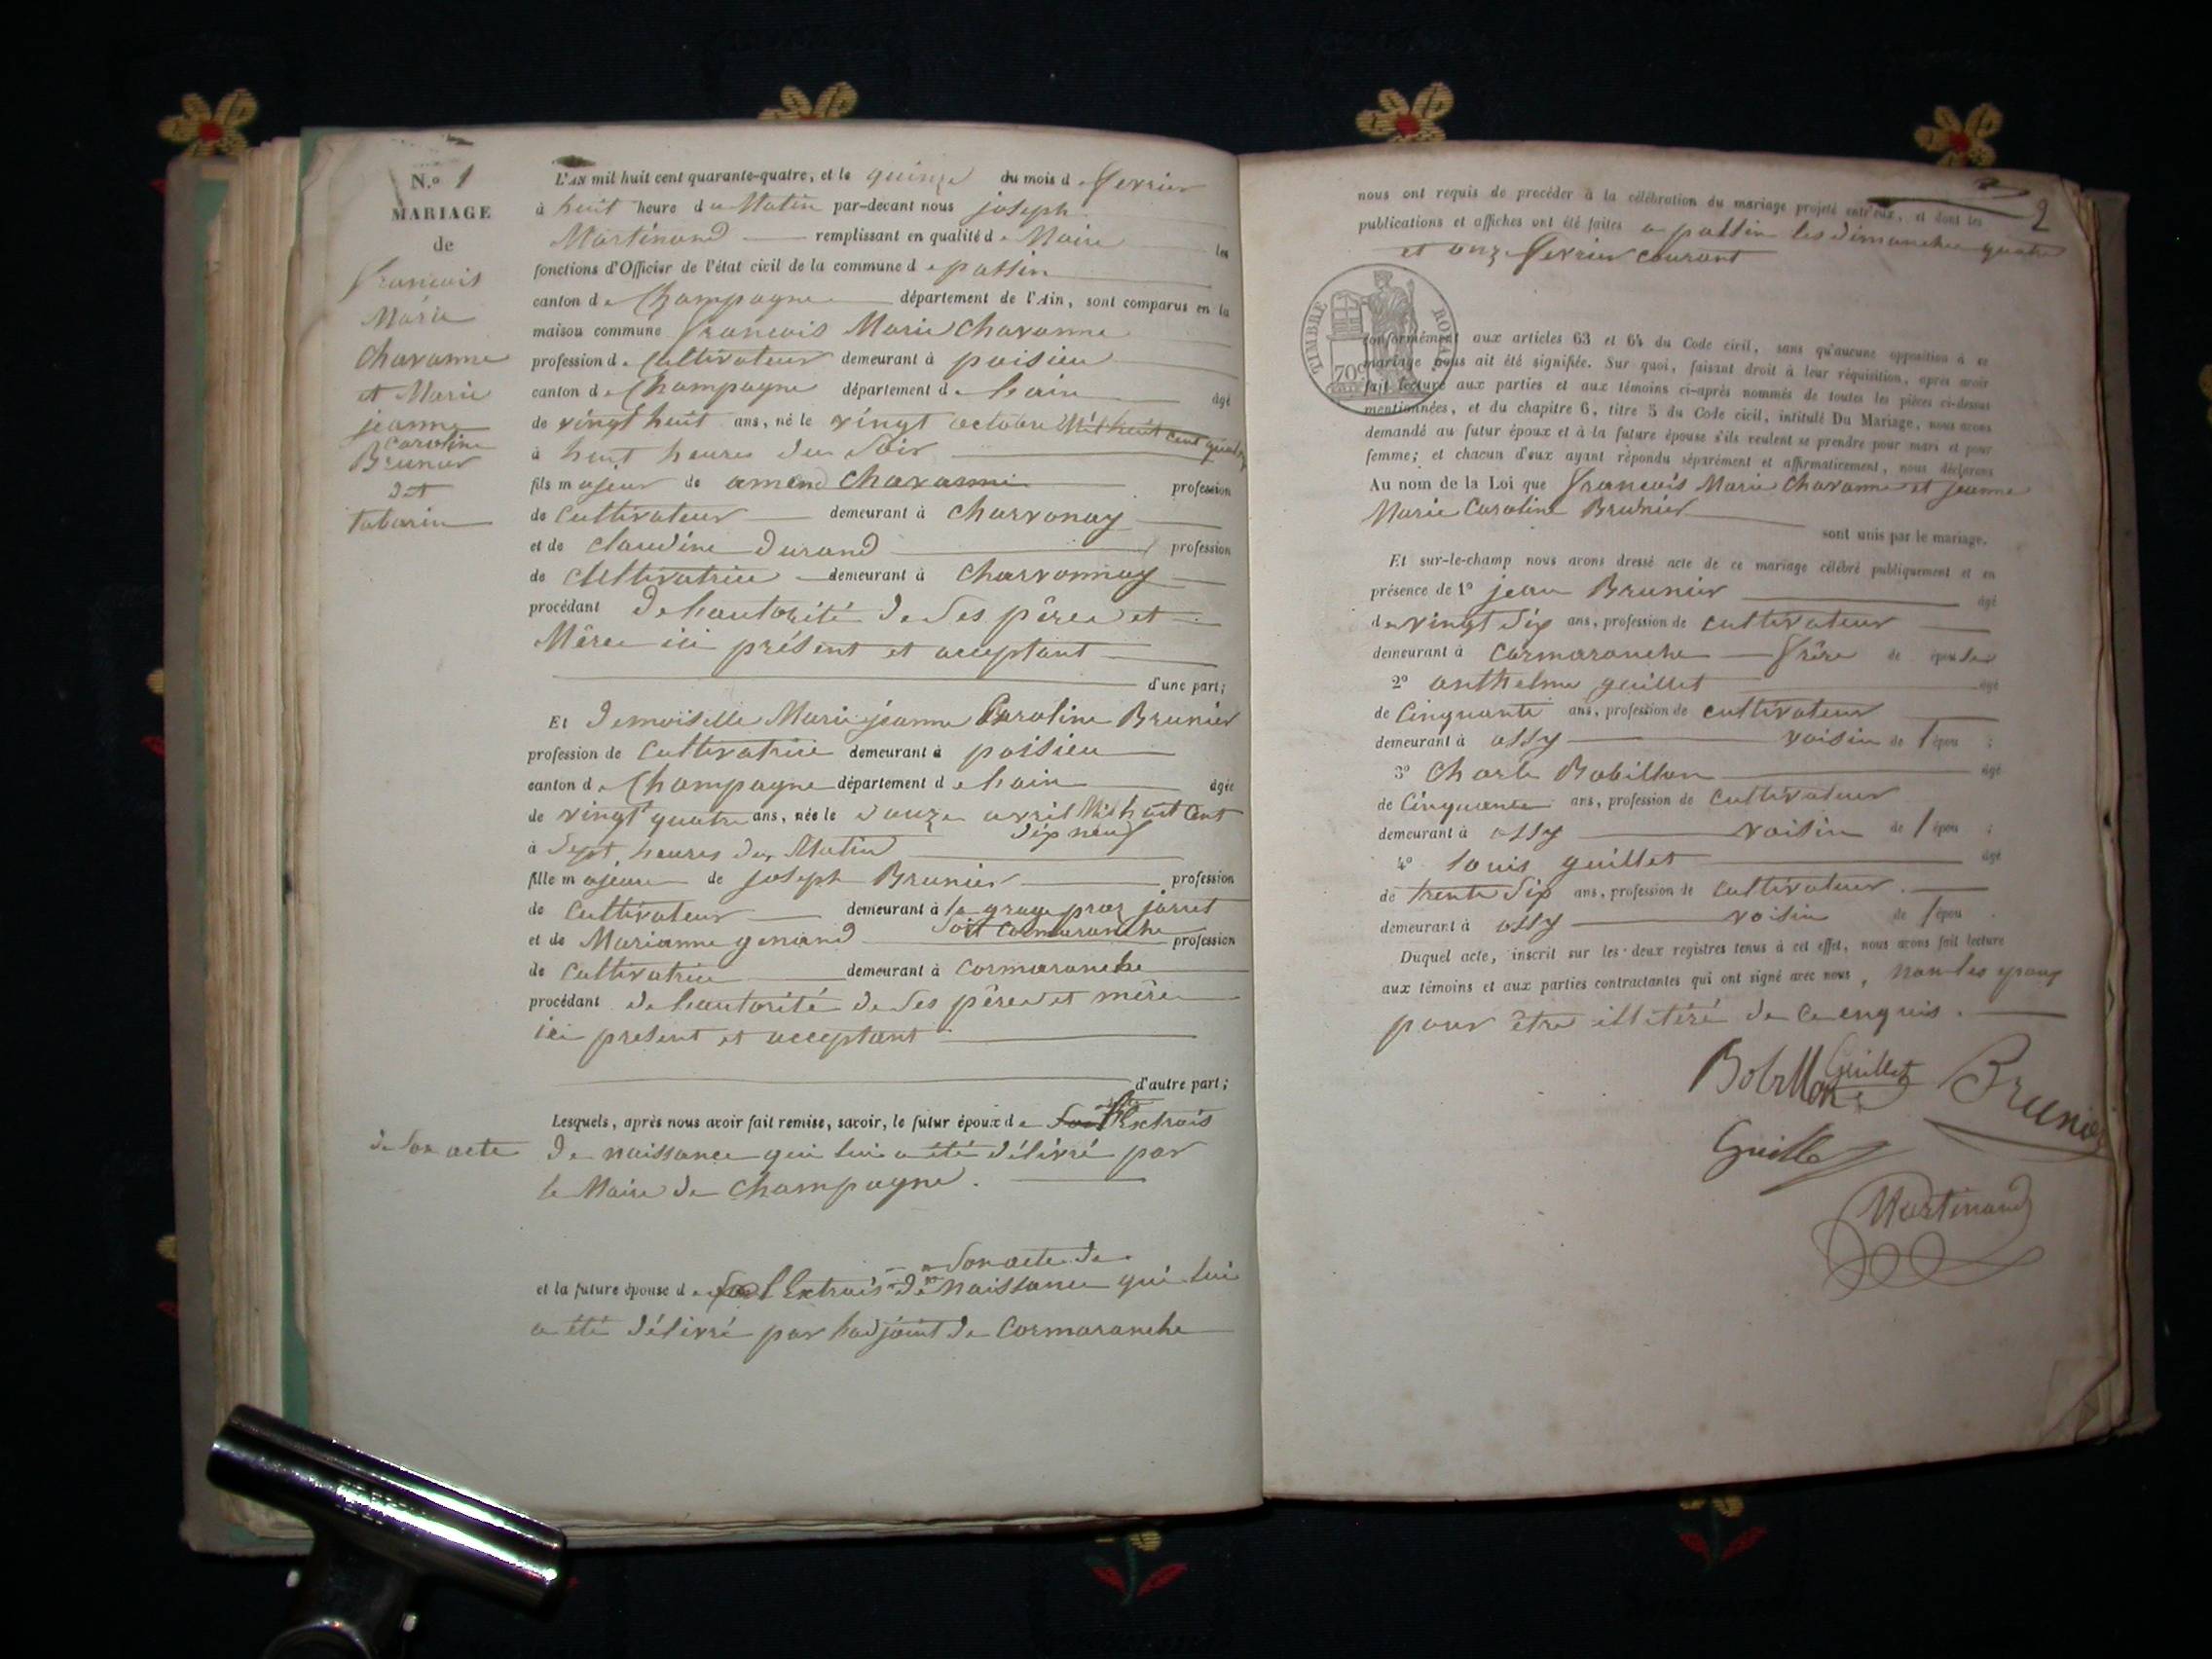 N.o 1
MARIAGE
de
francois
Marie
Chavanne
et Marie
jeanne
Caroline
Brunier
dit
tabarin
L'AN mil huit cent quarante-quatre, et le quinze du mois de fevrier
à huit heure du Matin par-devant nous joseph
Martinand remplissant en qualité de Maire les
fonctions d'Officier de l'état civil de la commune de passin
canton de Champagne département de l'Ain, sont comparus en la
maison commune francois Marie Chavanne
profession de Cultivateur demeurant à poisieu
canton de Champagne département de lain âgé
de vingt huit ans, né le vingt octobre Mil huit cent quinze
à huit heures du Soir
fils majeur de amand Chavanne profession
de Cultivateur demeurant à Charvonay
et de Claudine durand profession
de Cultivatrice demeurant à Charvonnay
procédant de lautorité de Ses pêre et
Mêre ici présent et acceptant
d'une part;
Et demoiselle Marie jeanne Caroline Brunier
profession de Cultivatrice demeurant à poisieu
canton de Champagne département de lain âgée
de vingt quatre ans, née le douze avril Mil huit Cent
dix neuf
à Sept heures du Matin
fille majeure de joseph Brunier profession
de Cultivateur demeurant à la grange praz jarret
Soit Cormaranche
et de Marianne genand profession
de Cultivatrice demeurant à Cormaranche
procédant de lautorité de Ses pêre et mêre
ici present et acceptant
d'autre part;
Lesquels, après nous avoir fait remise, savoir, le futur époux de lExtrais
de Son acte de naissance qui lui a été délivré par
le Maire de Champagne.
Son acte de
et la future épouse de l Extrais de naissance qui lui
a été délivré par ladjoint de Cormaranche
2
nous ont requis de procéder à la célébration du mariage projeté entr'eux, et dont les
publications et affiches ont été faites a passin les dimanches quatre
et onze fevrier courant
TIMBRE ROYAL
70c
conformément aux articles 63 et 64 du Code civil, sans qu'aucune opposition à ce
mariage nous ait été signifiée. Sur quoi, faisant droit à leur réquisition, après avoir
fait lecture aux parties et aux témoins ci-après nommés de toutes les pièces ci-dessus
mentionnées, et du chapitre 6, titre 5 du Code civil, intitulé Du Mariage, nous avons
demandé au futur époux et à la future épouse s'ils veulent se prendre pour mari et pour
femme; et chacun d'eux ayant répondu séparément et affirmativement, nous déclarons
Au nom de la Loi que francois Marie Chavanne et jeanne
Marie Caroline Brunier
sont unis par le mariage.
Et sur-le-champ nous avons dressé acte de ce mariage célébré publiquement et en
présence de 1o jean Brunier âgé
de vingt Six ans, profession de cultivateur
demeurant à Cormaranche frêre de épouse
2o anthelme guillet âgé
de Cinquante ans, profession de cultivateur
demeurant à ossy voisin de l'épou ;
3o Charle Bobillon âgé
de Cinquante ans, profession de Cultivateur
demeurant à ossy voisin de l'épou ;
4o louis guillet âgé
de trente Six ans, profession de Cultivateur
demeurant à ossy voisin de l'épou .
Duquel acte, inscrit sur les deux registres tenus à cet effet, nous avons fait lecture
aux témoins et aux parties contractantes qui ont signé avec nous, non les epoux
pour être illitéré de ce enquis.
Bobillon Guillet Brunier
Guillet
Martinand